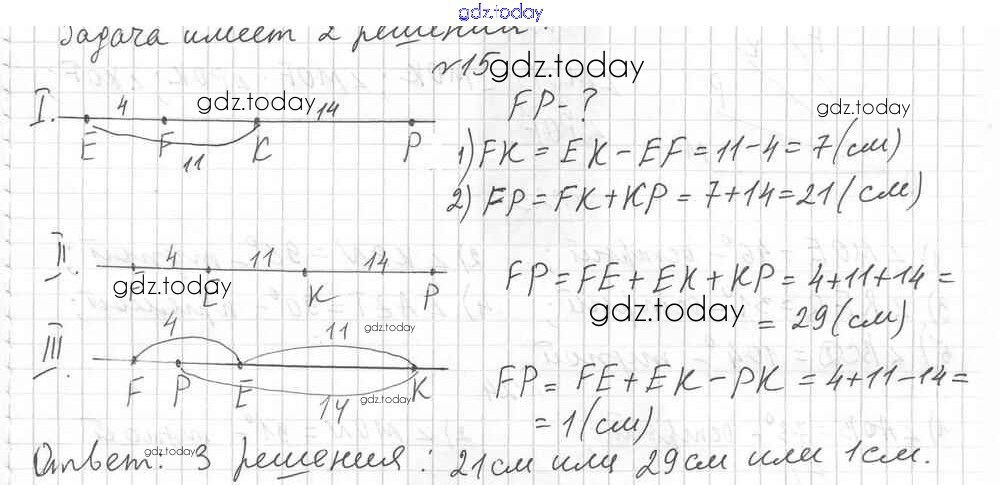 gdz.today
Задача имеет 2 решения.
№15 gdz.today
I. 4 gdz.today 14
E F K P
11
FP - ? gdz.today
1) FK = EK - EF = 11 - 4 = 7 (см)
2) FP = FK + KP = 7 + 14 = 21 (см)
II. 4 11 14
F E K P
gdz.today
FP = FE + EK + KP = 4 + 11 + 14 =
= 29 (см)
gdz.today
III. 4 11
gdz.today
F P E K
14 gdz.today
FP = FE + EK - PK = 4 + 11 - 14 =
= 1 (см)
Ответ: gdz.today 3 решения: 21 см или 29 см или 1 см.